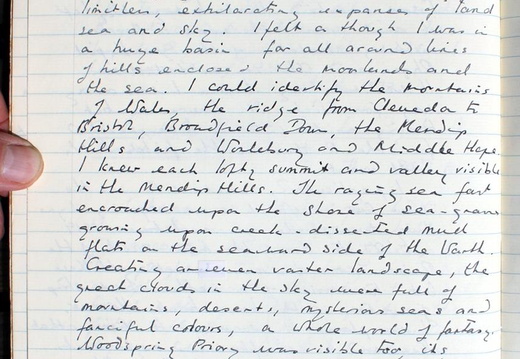 limitless, exhilarating expanses of land
sea and sky. I felt as though I was in
a huge basin for all around lines
of hills enclosed the moorlands and
the sea. I could identify the mountains
of Wales, the ridge from Clevedon to
Bristol, Broadfield Down, the Mendip
Hills and Worlebury and Middle Hope
I knew each lofty summit and valley visible
in the Mendip Hills. The raging sea fast
encroached upon the shore of sea-grass
growing upon creek-dissected mud
flats on the seaward side of the Warth.
Creating an even vaster landscape, the
great clouds in the sky were full of
mountains, deserts, mysterious seas and
fanciful colours, a whole world of fantasy.
Woodspring Priory was visible too, its